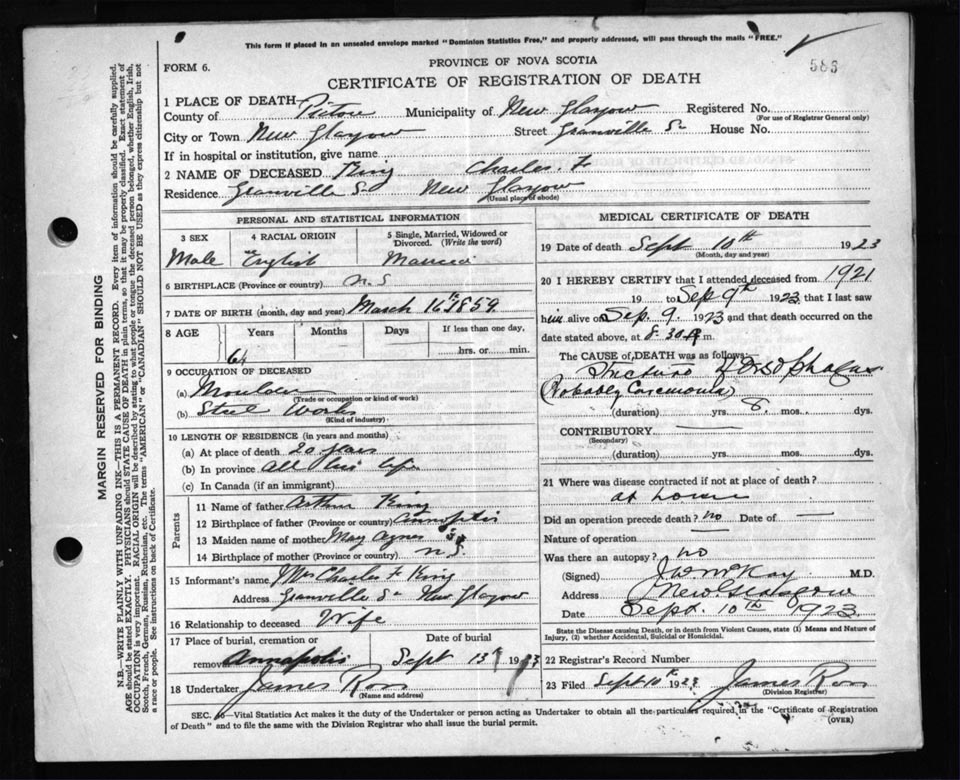 This form if placed in an unsealed envelope marked "Dominion Statistics Free," and properly addressed, will pass through the mails "FREE."
586
PROVINCE OF NOVA SCOTIA
FORM 6.
CERTIFICATE OF REGISTRATION OF DEATH
1 PLACE OF DEATH
County of Pictou Municipality of New Glasgow Registered No.
(For use of Registrar General only)
City or Town New Glasgow Street Granville St House No.
If in hospital or institution, give name
2 NAME OF DECEASED King Charles F
Residence Granville St New Glasgow
(Usual place of abode)
PERSONAL AND STATISTICAL INFORMATION
3 SEX 4 RACIAL ORIGIN 5 Single, Married, Widowed or Divorced. (Write the word)
Male English Married
6 BIRTHPLACE (Province or country) N.S
7 DATE OF BIRTH (month, day and year) March 16th 1859.
8 AGE Years Months Days If less than one day,
64 hrs. or min.
9 OCCUPATION OF DECEASED
(a) Moulder
(Trade or occupation or kind of work)
(b) Steel Works
(Kind of industry)
10 LENGTH OF RESIDENCE (in years and months)
(a) At place of death 20 years
(b) In province all his life
(c) In Canada (if an immigrant)
Parents
11 Name of father Arthur King
12 Birthplace of father (Province or country) Annapolis
13 Maiden name of mother May Agnes
14 Birthplace of mother (Province or country) N.S.
15 Informant's name Mrs Charles F King
Address Granville St New Glasgow
16 Relationship to deceased Wife
17 Place of burial, cremation or removal Annapolis
Date of burial Sept 13 1923
18 Undertaker James Ross
(Name and address)
MEDICAL CERTIFICATE OF DEATH
19 Date of death Sept 10th 1923
(Month, day and year)
20 I HEREBY CERTIFY that I attended deceased from 1921
19 to Sep 9th 1923, that I last saw
him alive on Sep. 9. 1923 and that death occurred on the
date stated above, at 8.30 m.
The CAUSE of DEATH was as follows:
Stricture Oesophagus
(Probably Carcinoma)
(duration) yrs. 8. mos. dys.
CONTRIBUTORY
(Secondary)
(duration) yrs. mos. dys.
21 Where was disease contracted if not at place of death?
at home
Did an operation precede death? no Date of —
Nature of operation —
Was there an autopsy? no
(Signed) J W McKay M.D.
Address New Glasgow
Date Sept. 10th 1923
State the Disease causing Death, or in death from Violent Causes, state (1) Means and Nature of Injury, (2) whether Accidental, Suicidal or Homicidal.
22 Registrar's Record Number
23 Filed Sept 10th 1923 James Ross
(Division Registrar)
SEC. —Vital Statistics Act makes it the duty of the Undertaker or person acting as Undertaker to obtain all the particulars required in the "Certificate of Registration
of Death" and to file the same with the Division Registrar who shall issue the burial permit.
(OVER)
MARGIN RESERVED FOR BINDING
N.B.—WRITE PLAINLY WITH UNFADING INK—THIS IS A PERMANENT RECORD. Every item of information should be carefully supplied.
AGE should be stated EXACTLY. PHYSICIANS should STATE CAUSE OF DEATH in plain terms, so that it may be properly classified. Exact statement of
OCCUPATION is very important. RACIAL ORIGIN will be described by stating to what people or tongue the deceased person belonged, whether English, Irish,
Scotch, French, German, Russian, Ruthenian, etc. The terms "AMERICAN" or "CANADIAN" SHOULD NOT BE USED as they express citizenship but not
a race or people. See instructions on back of Certificate.